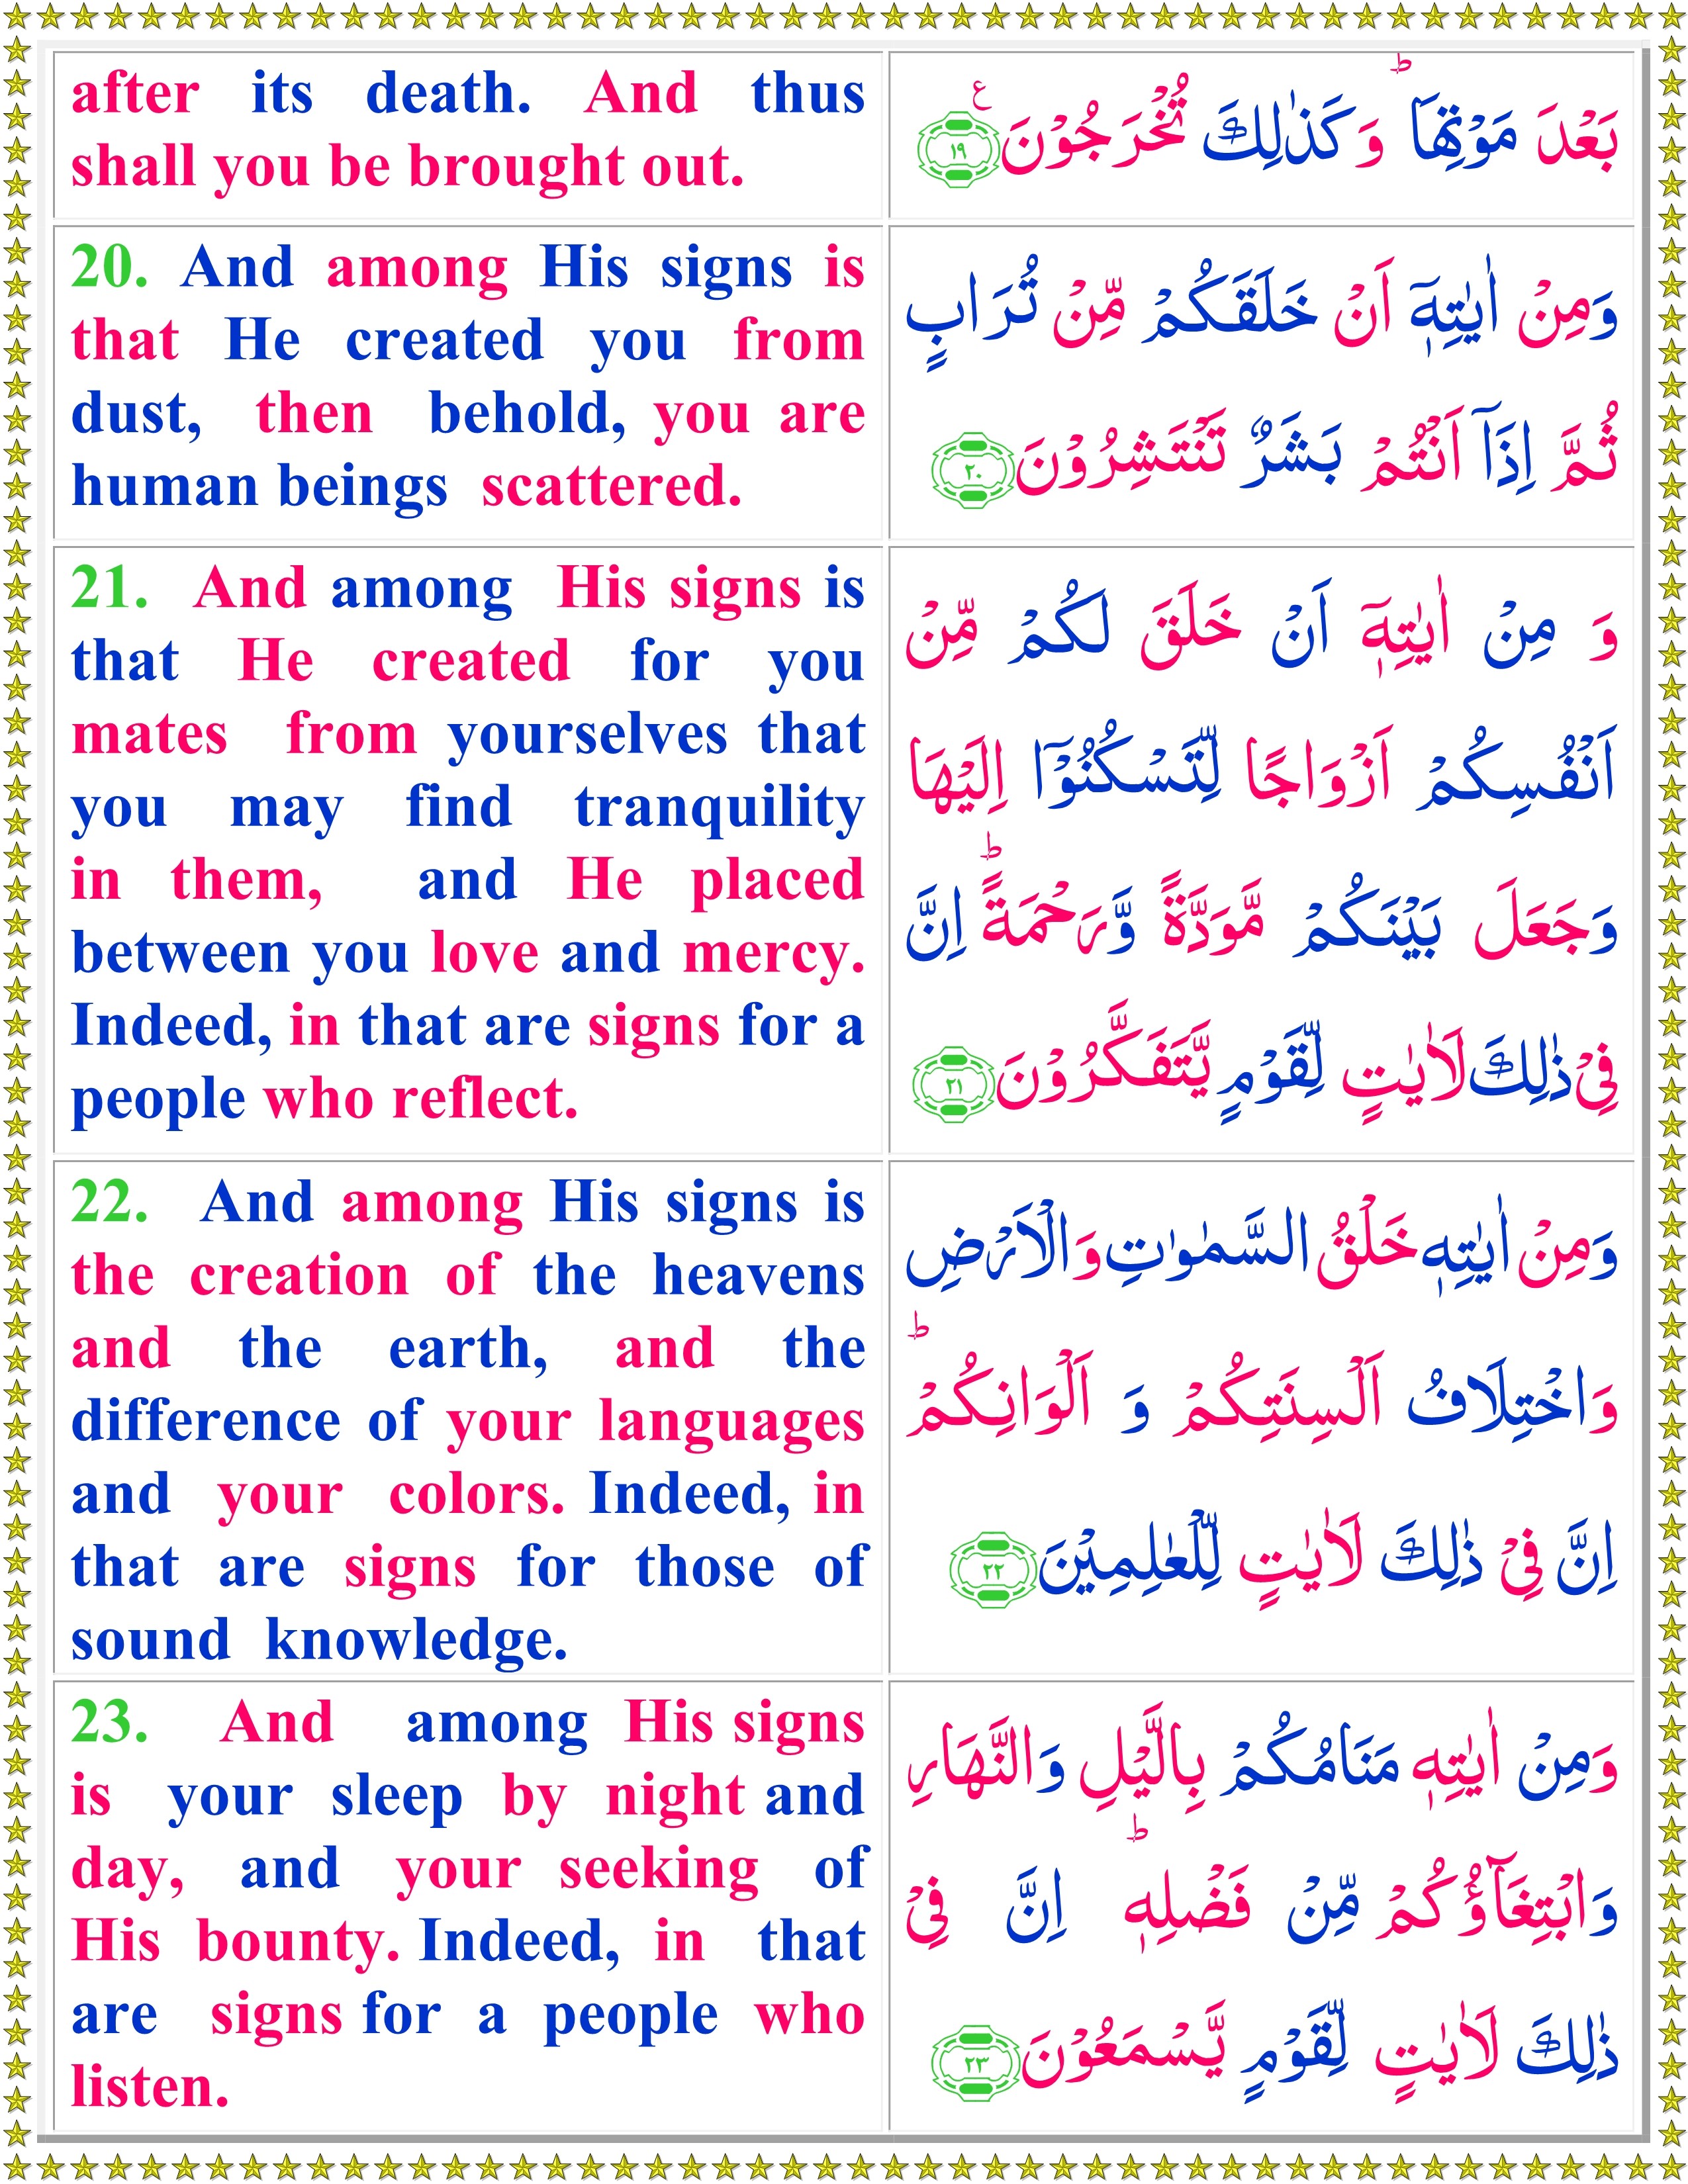 after its death. And thus
shall you be brought out.
بَعْدَ مَوْتِهَا ؕ وَكَذٰلِكَ تُخْرَجُوْنَ ﴿۱۹﴾ ع
20. And among His signs is
that He created you from
dust, then behold, you are
human beings scattered.
وَمِنْ اٰيٰتِهٖٓ اَنْ خَلَقَكُمْ مِّنْ تُرَابٍ
ثُمَّ اِذَآ اَنْتُمْ بَشَرٌ تَنْتَشِرُوْنَ ﴿۲۰﴾
21. And among His signs is
that He created for you
mates from yourselves that
you may find tranquility
in them, and He placed
between you love and mercy.
Indeed, in that are signs for a
people who reflect.
وَ مِنْ اٰيٰتِهٖٓ اَنْ خَلَقَ لَكُمْ مِّنْ
اَنْفُسِكُمْ اَزْوَاجًا لِّتَسْكُنُوْٓا اِلَيْهَا
وَجَعَلَ بَيْنَكُمْ مَّوَدَّةً وَّرَحْمَةً ؕ اِنَّ
فِيْ ذٰلِكَ لَاٰيٰتٍ لِّقَوْمٍ يَّتَفَكَّرُوْنَ ﴿۲۱﴾
22. And among His signs is
the creation of the heavens
and the earth, and the
difference of your languages
and your colors. Indeed, in
that are signs for those of
sound knowledge.
وَمِنْ اٰيٰتِهٖ خَلْقُ السَّمٰوٰتِ وَالْاَرْضِ
وَاخْتِلَافُ اَلْسِنَتِكُمْ وَ اَلْوَانِكُمْ ؕ
اِنَّ فِيْ ذٰلِكَ لَاٰيٰتٍ لِّلْعٰلِمِيْنَ ﴿۲۲﴾
23. And among His signs
is your sleep by night and
day, and your seeking of
His bounty. Indeed, in that
are signs for a people who
listen.
وَمِنْ اٰيٰتِهٖ مَنَامُكُمْ بِالَّيْلِ وَالنَّهَارِ
وَابْتِغَآؤُكُمْ مِّنْ فَضْلِهٖ ؕ اِنَّ فِيْ
ذٰلِكَ لَاٰيٰتٍ لِّقَوْمٍ يَّسْمَعُوْنَ ﴿۲۳﴾